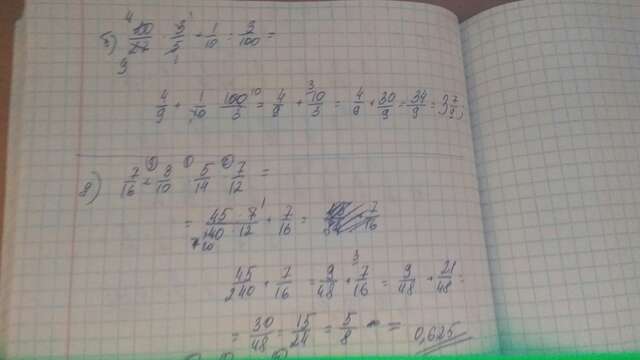 б) 20/27 · 3/5 + 1/10 : 3/100 =
4/9 + 1/10 · 100/3 = 4/9 + 10/3 = 4/9 + 30/9 = 34/9 = 3 7/9;
д) 7/16 + 9/10 · 5/14 · 7/12 =
= 45 · 7/140 · 12 + 7/16 =
45/240 + 7/16 = 9/48 + 7/16 = 9/48 + 21/48 =
= 30/48 = 15/24 = 5/8 = 0,625